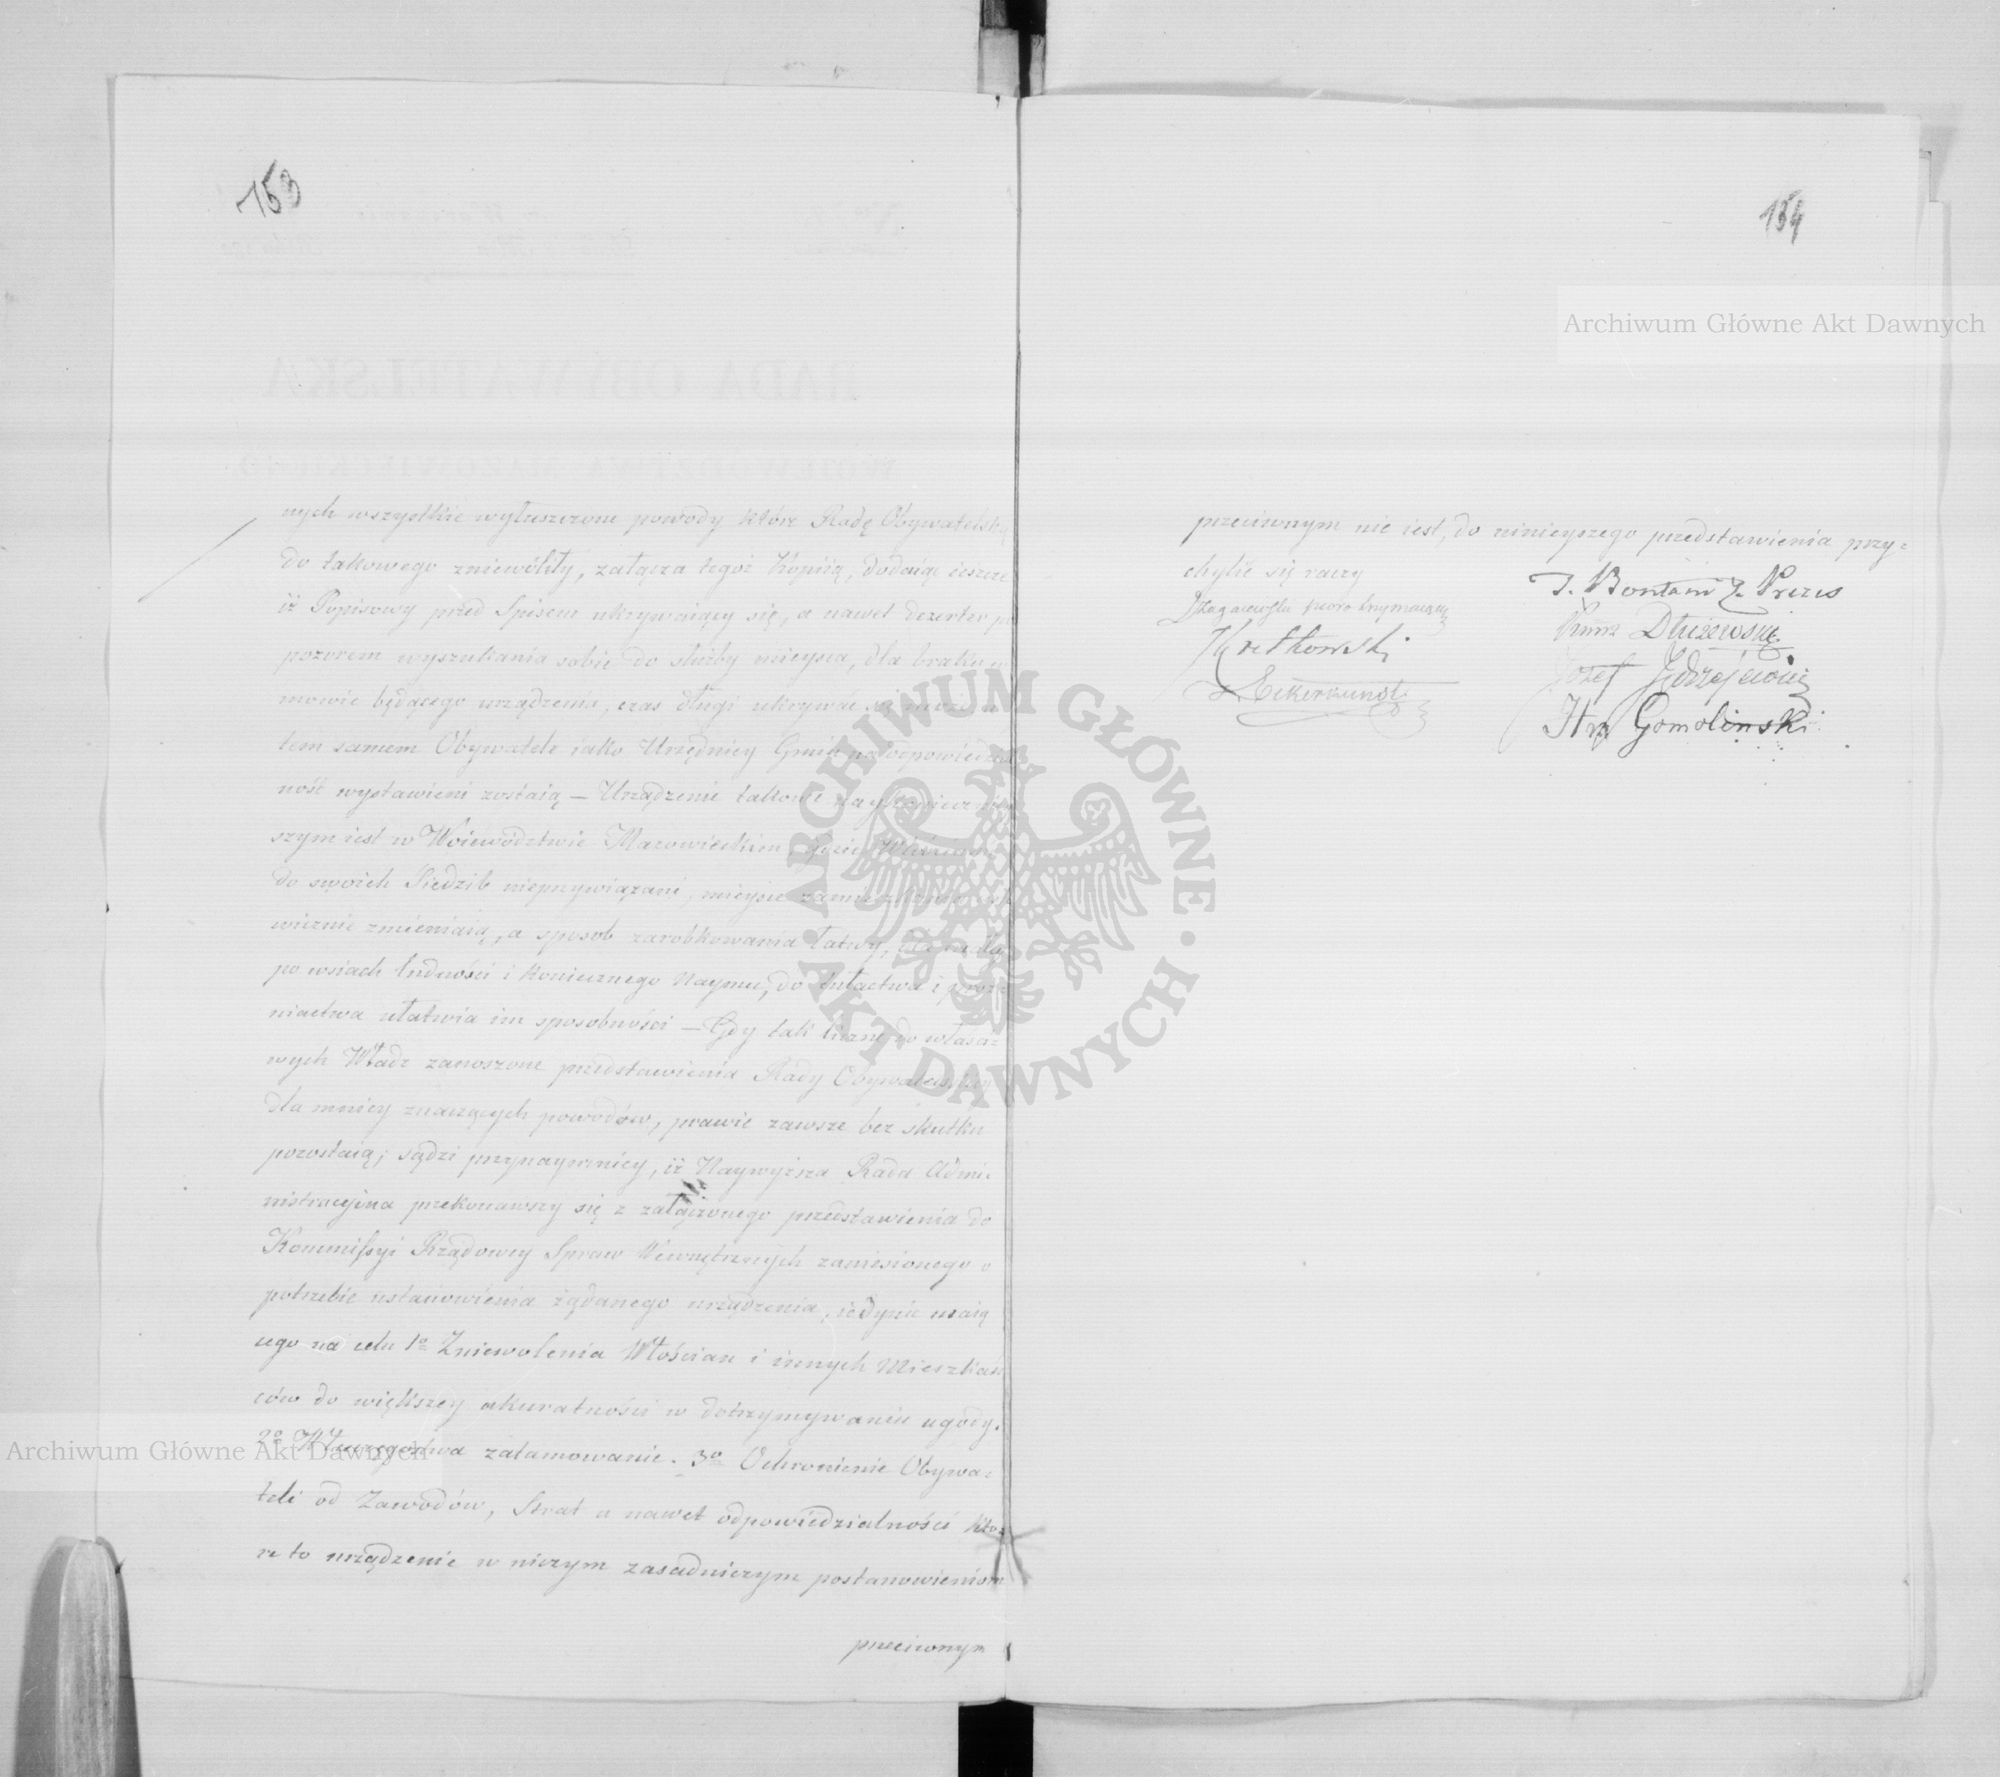 153
nych wszystkie wyłuszczone powody które Radę Obywatelską
do takowego zniewoliły, załącza tegoż Kopiią, dodaiąc ieszcze
iż Popisowy przed Spisem ukrywaiący się, a nawet dezerter po
pozorem wyszukania sobie do służby mieysca, dla braku w
mowie będącego urządzenia, czas długi ukrywać się może a
tem samem Obywatele iako Urzędnicy Gmin na odpowiedzial
ność wystawieni zostaią — Urządzenie takowe naykonieczniey
szym iest w Woiewództwie Mazowieckim, gdzie Włościanie
do swoich Siedzib nieprzywiązani, mieysce zamieszkania
wicznie zmieniaią, a sposób zarobkowania łatwy, dla małey
po wsiach ludności i koniecznego Naymu, do tułactwa i próż
niactwa ułatwia im sposobności — Gdy tak liczne do właści=
wych Władz zanoszone przedstawienia Rady Obywatelskiey
dla mniey znaczących powodów, prawie zawsze bez skutku
pozostaią; sądzi przynaymniey, iż Naywyższa Rada Admi=
nistracyina przekonawszy się z załączonego przedstawienia do
Kommissyi Rządowey Spraw Wewnętrznych zaniesionego o
potrzebie ustanowienia żądanego urządzenia, iedynie maią
cego na celu 1o Zniewolenia Włościan i innych Mieszkań
ców do większey akuratności w dotrzymywaniu ugody.
2o Włóczęgostwa zatamowanie. 3o Ochronienie Obywa=
teli od Zawodów, Strat a nawet odpowiedzialności któ=
re to urządzenie w niczym zasadniczym postanowieniom
przeciwnym
154
przeciwnym nie iest, do ninieyszego przedstawienia przy=
chylić się raczy
J. Bontani Z. Prezes
Dłużewski
Kretkowski
Józef Jędrzejewicz
Gomoliński
Archiwum Główne Akt Dawnych
Archiwum Główne Akt Dawnych
ARCHIWUM GŁÓWNE · AKT DAWNYCH ·
RADA OBYWATELSKA
WOJEWÓDZTWA MAZOWIECKIEGO.